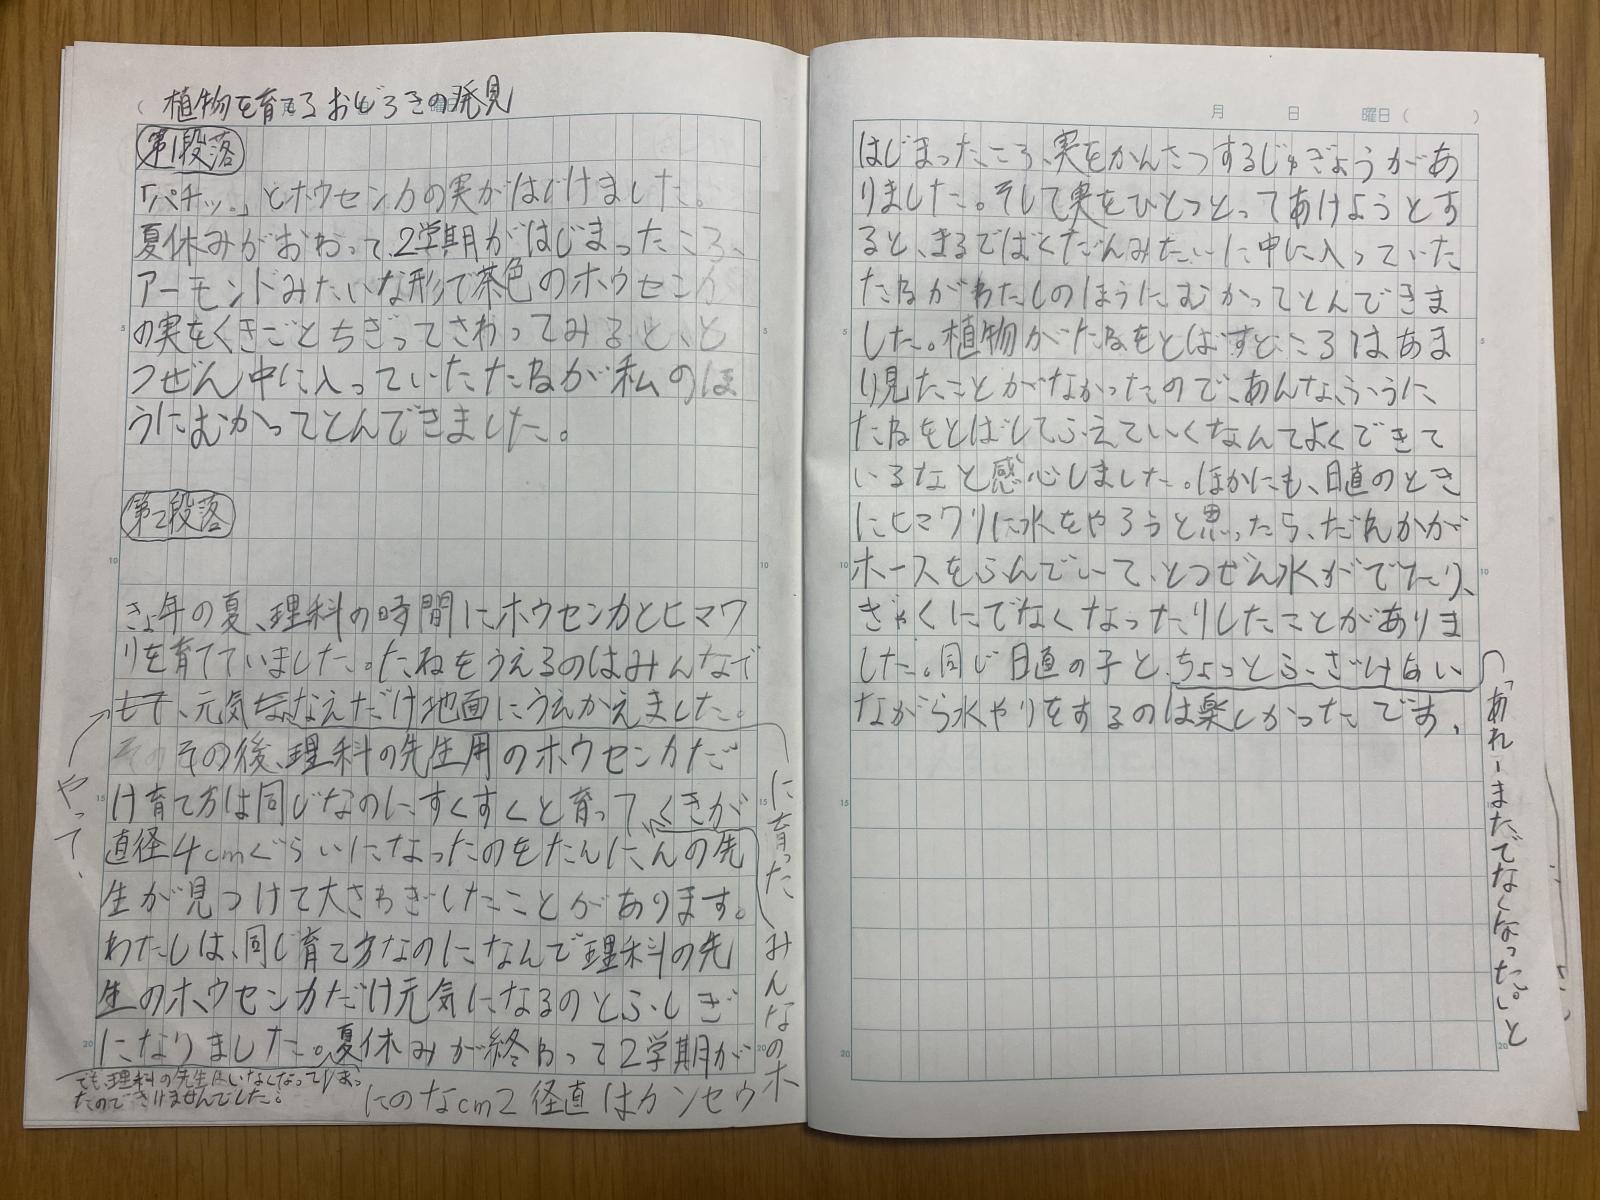 植物を育てるおどろきの発見
第1段落
「パチッ。」とホウセンカの実がはじけました。
夏休みがおわって、2学期がはじまったころ、
アーモンドみたいな形で茶色のホウセンカ
の実をくきごとちぎってさわってみると、と
つぜん中に入っていたたねが私のほ
うにむかってとんできました。
第二段落
きょ年の夏、理科の時間にホウセンカとヒマワ
リを育てていました。たねをうえるのはみんなで
もで、元気ななえだけ地面にうえかえました。
その その後、理科の先生用のホウセンカだ
け育て方は同じなのにすくすくと育って、くきが
直径4cmぐらいになったのをたんにんの先
生が見つけて大さわぎしたことがあります。
わたしは、同じ育て方なのになんで理科の先
生のホウセンカだけ元気になるのとふしぎ
になりました。夏休みが終わって2学期が
でも、理科の先生はいなくなってしまっ
たのできけませんでした。
やって、
に育った
みんなのホ
ウセンカは直径2cmなのに
月 日 曜日( )
はじまったころ、実をかんさつするじゅぎょうがあ
りました。そして実をひとつとってあけようとす
ると、まるでばくだんみたいに中に入っていた
たねがわたしのほうにむかってとんできま
した。植物がたねをとばすところはあま
り見たことがなかったので、あんなふうに
たねをとばしてふえていくなんてよくできて
いるなと感心しました。ほかにも、日直のとき
にヒマワリに水をやろうと思ったら、だれかが
ホースをふんでいて、とつぜん水がでたり、
ぎゃくにでなくなったりしたことがありま
した。同じ日直の子と、ちょっとふざけあい
ながら水やりをするのは楽しかったです。
「あれーまたでなくなった。」と